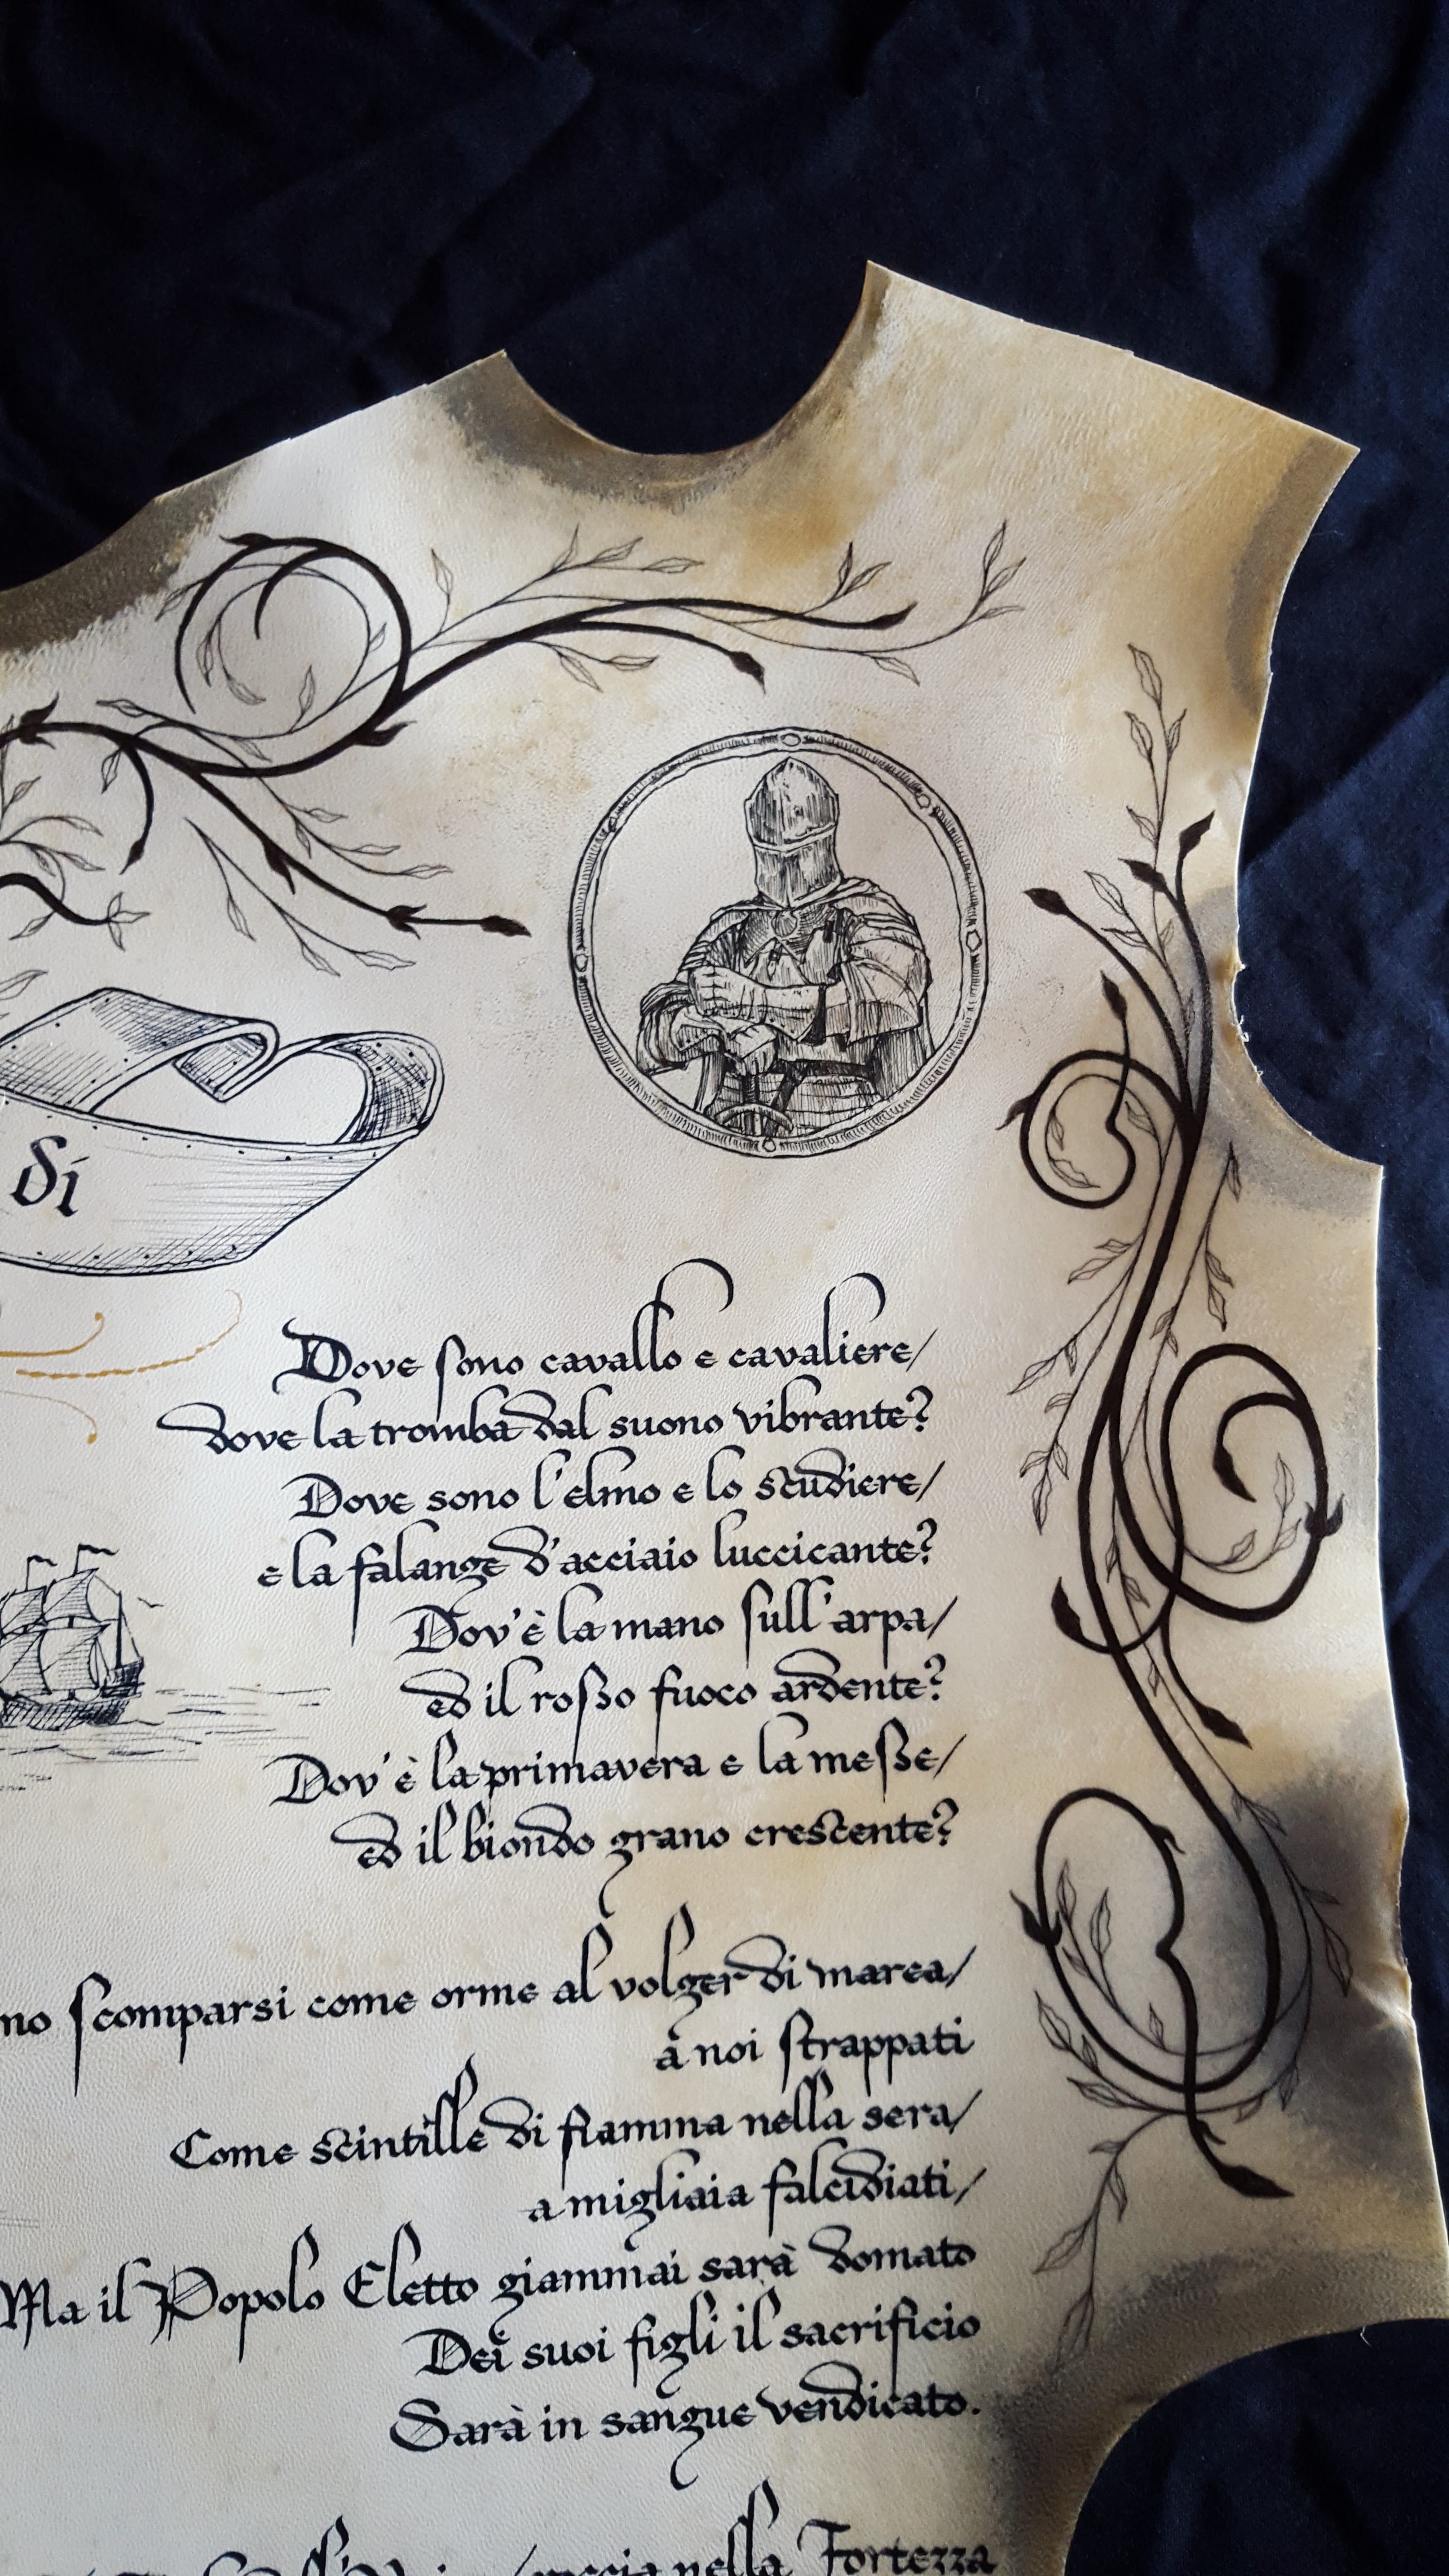 di
Dove sono cavallo e cavaliere/
dove la tromba dal suono vibrante?
Dove sono l'elmo e lo scudiere/
e la falange d'acciaio luccicante?
Dov'è la mano sull'arpa/
ed il rosso fuoco ardente?
Dov'è la primavera e la messe/
ed il biondo grano crescente?
no scomparsi come orme al volger di marea/
a noi strappati
Come scintille di fiamma nella sera/
a migliaia falcidiati/
Ma il Popolo Eletto giammai sarà domato
Dei suoi figli il sacrificio
Sarà in sangue vendicato.
nella Fortezza